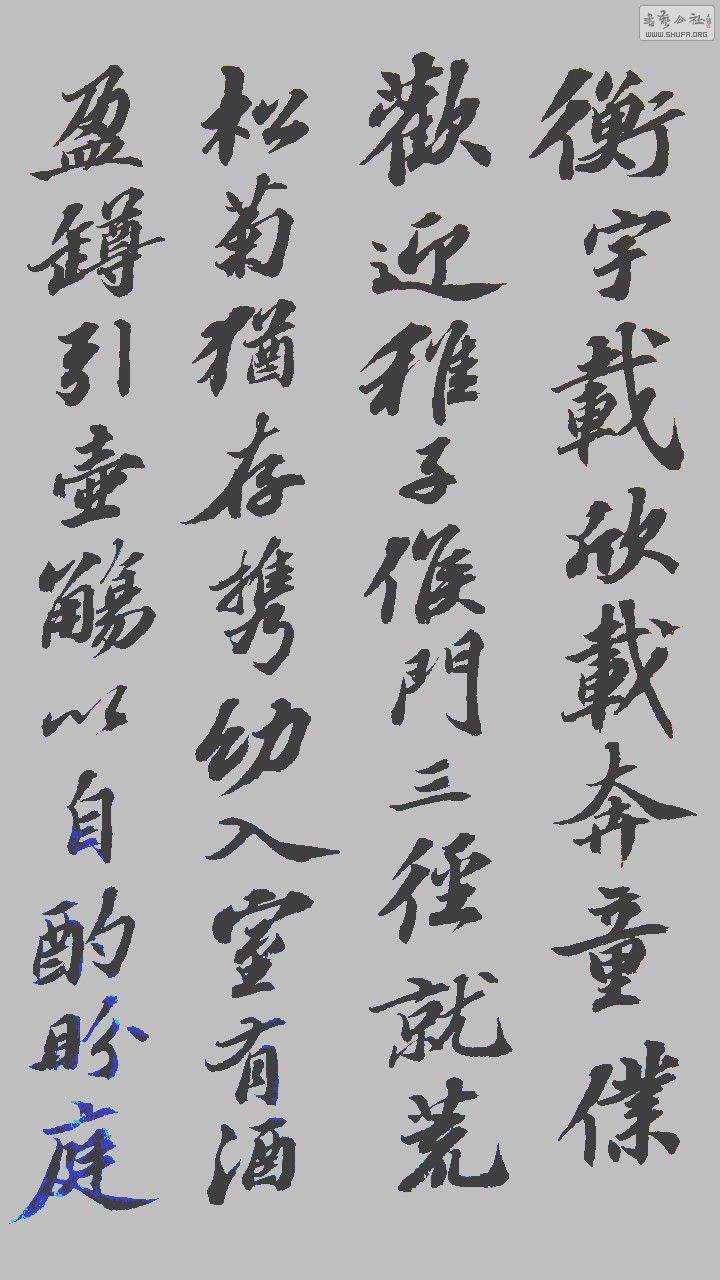 衡宇載欣載奔童僕
歡迎稚子候門三徑就荒
松菊猶存携幼入室有酒
盈罇引壺觴以自酌盼庭
書藝公社
WWW.SHUFA.ORG